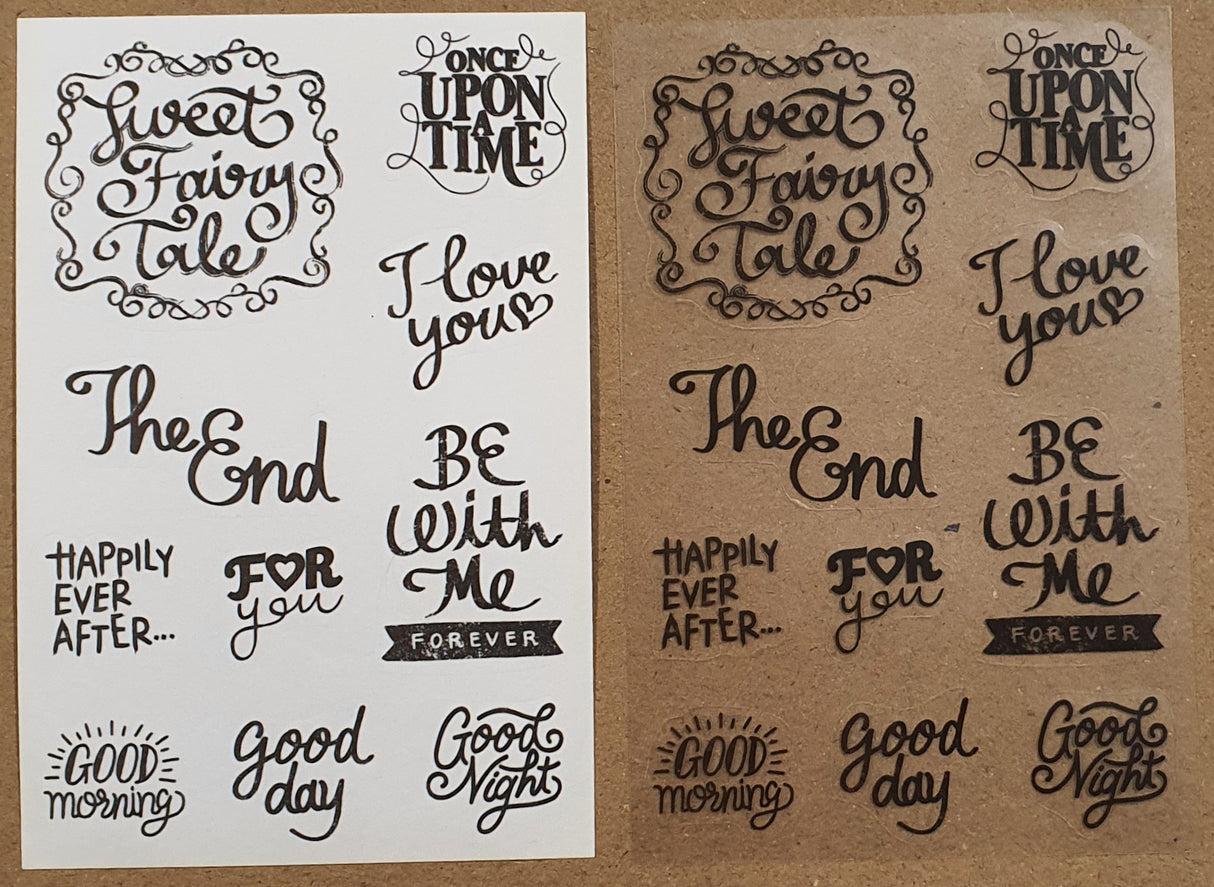 Sweet
Fairy
Tale
ONCE
UPON
A
TIME
I love
you
The
End
BE
With
Me
FOREVER
HAPPILY
EVER
AFTER...
FOR
you
GOOD
morning
Good
day
Good
Night
Sweet
Fairy
Tale
ONCE
UPON
A
TIME
I love
you
The
End
BE
With
Me
FOREVER
HAPPILY
EVER
AFTER...
FOR
you
GOOD
morning
Good
day
Good
Night